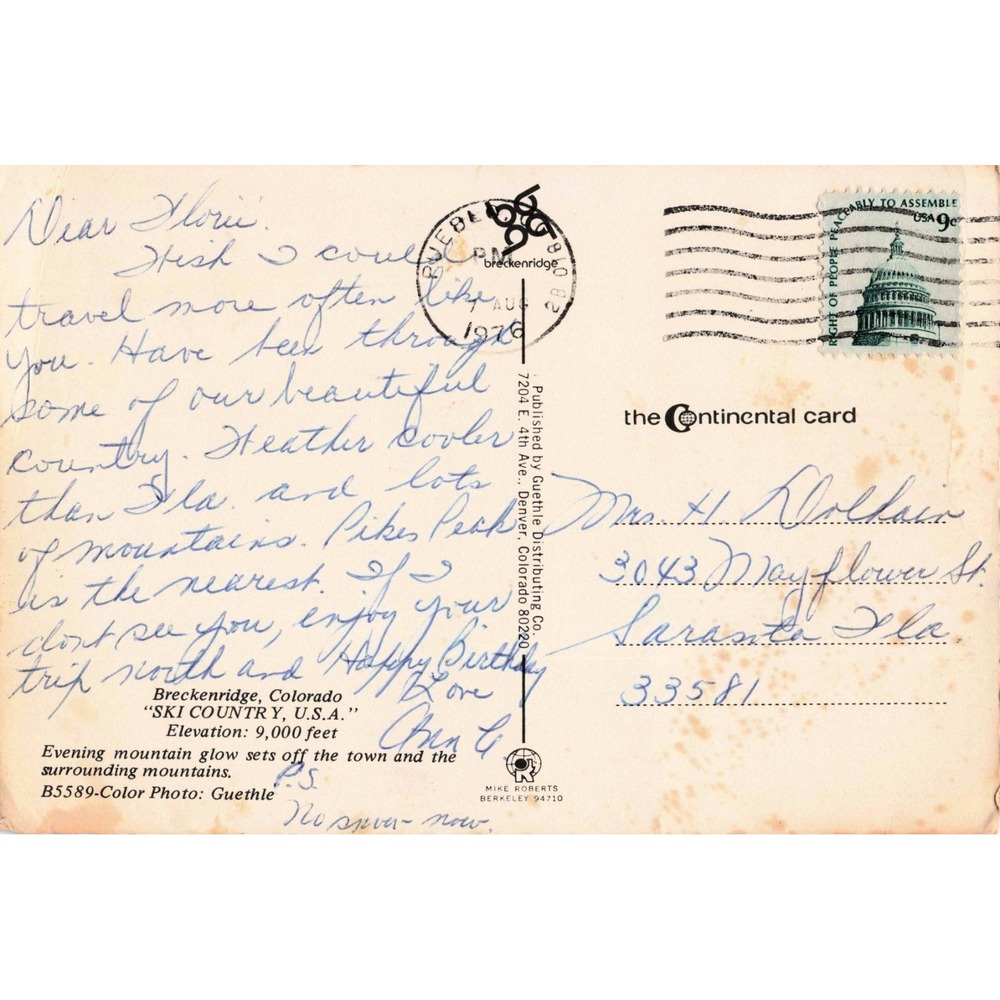 Dear Florie.
Wish I could
travel more often like
you. Have been through
some of our beautiful
country. Weather cooler
than Fla. and lots
of mountains. Pikes Peak
is the nearest. If I
dont see you, enjoy your
trip north and Happy Birthday
Love
Ann C.
P.S.
No snow now.
Breckenridge, Colorado
"SKI COUNTRY, U.S.A."
Elevation: 9,000 feet
Evening mountain glow sets off the town and the
surrounding mountains.
B5589-Color Photo: Guethle
breckenridge
PUEBLO, CO 810
PM
7 AUG
1976
Published by Guethle Distributing Co.
7204 E. 4th Ave., Denver, Colorado 80220
MIKE ROBERTS
BERKELEY 94710
RIGHT OF PEOPLE PEACEABLY TO ASSEMBLE
USA 9c
the Continental card
Mrs. H.
3043 Mayflower St.
Sarasota Fla.
33581